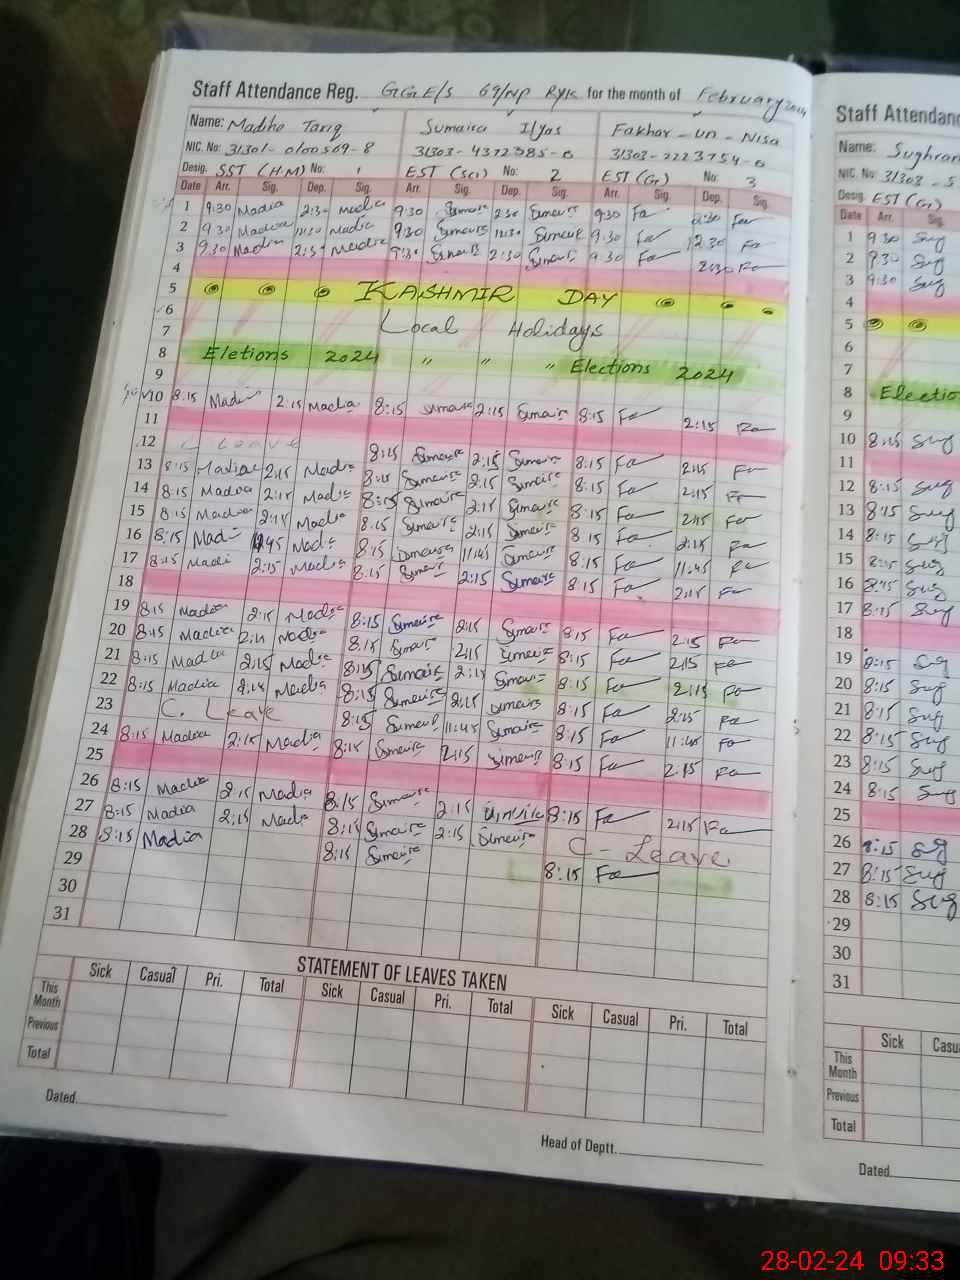 Staff Attendance Reg. GGE/S 69/NP RYK for the month of February 2024
Name: Madiha Tariq Sumaira Ilyas Fakhar-un-Nisa
NIC. No: 31301-0100569-8 31303-4372385-0 31303-2223754-0
Desig. SST (H.M) No: 1 EST (Sci) No: 2 EST (G) No: 3
Date Arr. Sig. Dep. Sig. Arr. Sig. Dep. Sig. Arr. Sig. Dep. Sig.
1 9:30 Madia 2:30 Madia 9:30 Sumaira 2:30 Sumaira 9:30 Fa 2:30 Fa
2 9:30 Madia 12:30 Madia 9:30 Sumaira 12:30 Sumaira 9:30 Fa 12:30 Fa
3 9:30 Madia 2:30 Madia 9:30 Sumaira 2:30 Sumaira 9:30 Fa 2:30 Fa
4
5 KASHMIR DAY
6
7 Local Holidays
8 Eletions 2024 " " " Elections 2024
9
10 8:15 Madia 2:15 Madia 8:15 Sumaira 2:15 Sumaira 8:15 Fa 2:15 Fa
11
12 C Leave 8:15 Sumaira 2:15 Sumaira 8:15 Fa 2:15 Fa
13 8:15 Madia 2:15 Madia 8:15 Sumaira 2:15 Sumaira 8:15 Fa 2:15 Fa
14 8:15 Madia 2:15 Madia 8:15 Sumaira 2:15 Sumaira 8:15 Fa 2:15 Fa
15 8:15 Madia 2:15 Madia 8:15 Sumaira 2:15 Sumaira 8:15 Fa 2:15 Fa
16 8:15 Madia Madia 8:15 Sumaira 11:45 Sumaira 8:15 Fa 11:45 Fa
17 8:15 Madia 2:15 Madia 8:15 Sumaira 2:15 Sumaira 8:15 Fa 2:15 Fa
18
19 8:15 Madia 2:15 Madia 8:15 Sumaira 2:15 Sumaira 8:15 Fa 2:15 Fa
20 8:15 Madia 2:15 Madia 8:15 Sumaira 2:15 Sumaira 8:15 Fa 2:15 Fa
21 8:15 Madia 2:15 Madia 8:15 Sumaira 2:15 Sumaira 8:15 Fa 2:15 Fa
22 8:15 Madia 2:15 Madia 8:15 Sumaira 2:15 Sumaira 8:15 Fa 2:15 Fa
23 C. Leave 8:15 Sumaira 11:45 Sumaira 8:15 Fa 11:45 Fa
24 8:15 Madia 2:15 Madia 8:15 Sumaira 2:15 Sumaira 8:15 Fa 2:15 Fa
25
26 8:15 Madia 2:15 Madia 8:15 Sumaira 2:15 8:15 Fa 2:15 Fa
27 8:15 Madia 2:15 Madia 8:15 Sumaira 2:15 Sumaira C - Leave
28 8:15 Madia 8:15 Sumaira 8:15 Fa
29
30
31
STATEMENT OF LEAVES TAKEN
Sick Casual Pri. Total Sick Casual Pri. Total Sick Casual Pri. Total
This Month
Previous
Total
Dated
Head of Deptt.
Staff Attendanc
Name: Sughran
NIC. No: 31303-5
Desig. EST (G)
Date Arr. Sig.
1 9:30 Sug
2 9:30 Sug
3 9:30 Sug
4
5
6
7
8 Electio
9
10 8:15 Sug
11
12 8:15 Sug
13 8:15 Sug
14 8:15 Sug
15 8:15 Sug
16 8:15 Sug
17 8:15 Sug
18
19 8:15 Sug
20 8:15 Sug
21 8:15 Sug
22 8:15 Sug
23 8:15 Sug
24 8:15 Sug
25
26 8:15 Sug
27 8:15 Sug
28 8:15 Sug
29
30
31
Sick Casu
This Month
Previous
Total
Dated
28-02-24 09:33